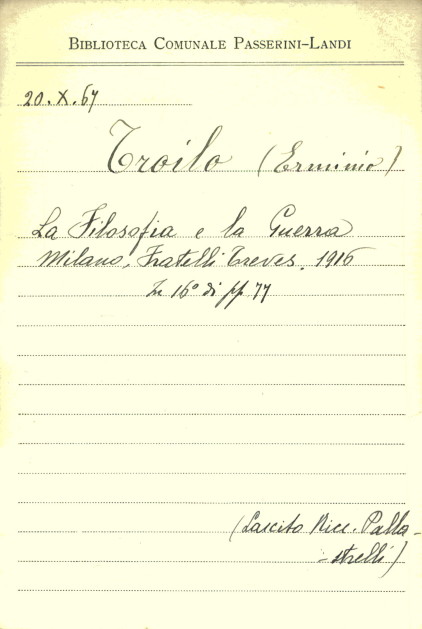 BIBLIOTECA COMUNALE PASSERINI-LANDI
20.X.67
Troilo (Erminio)
La Filosofia e la Guerra
Milano, Fratelli Treves, 1916
In 16° di pp. 77
(Lascito Ricc. Palla-
-strelli)